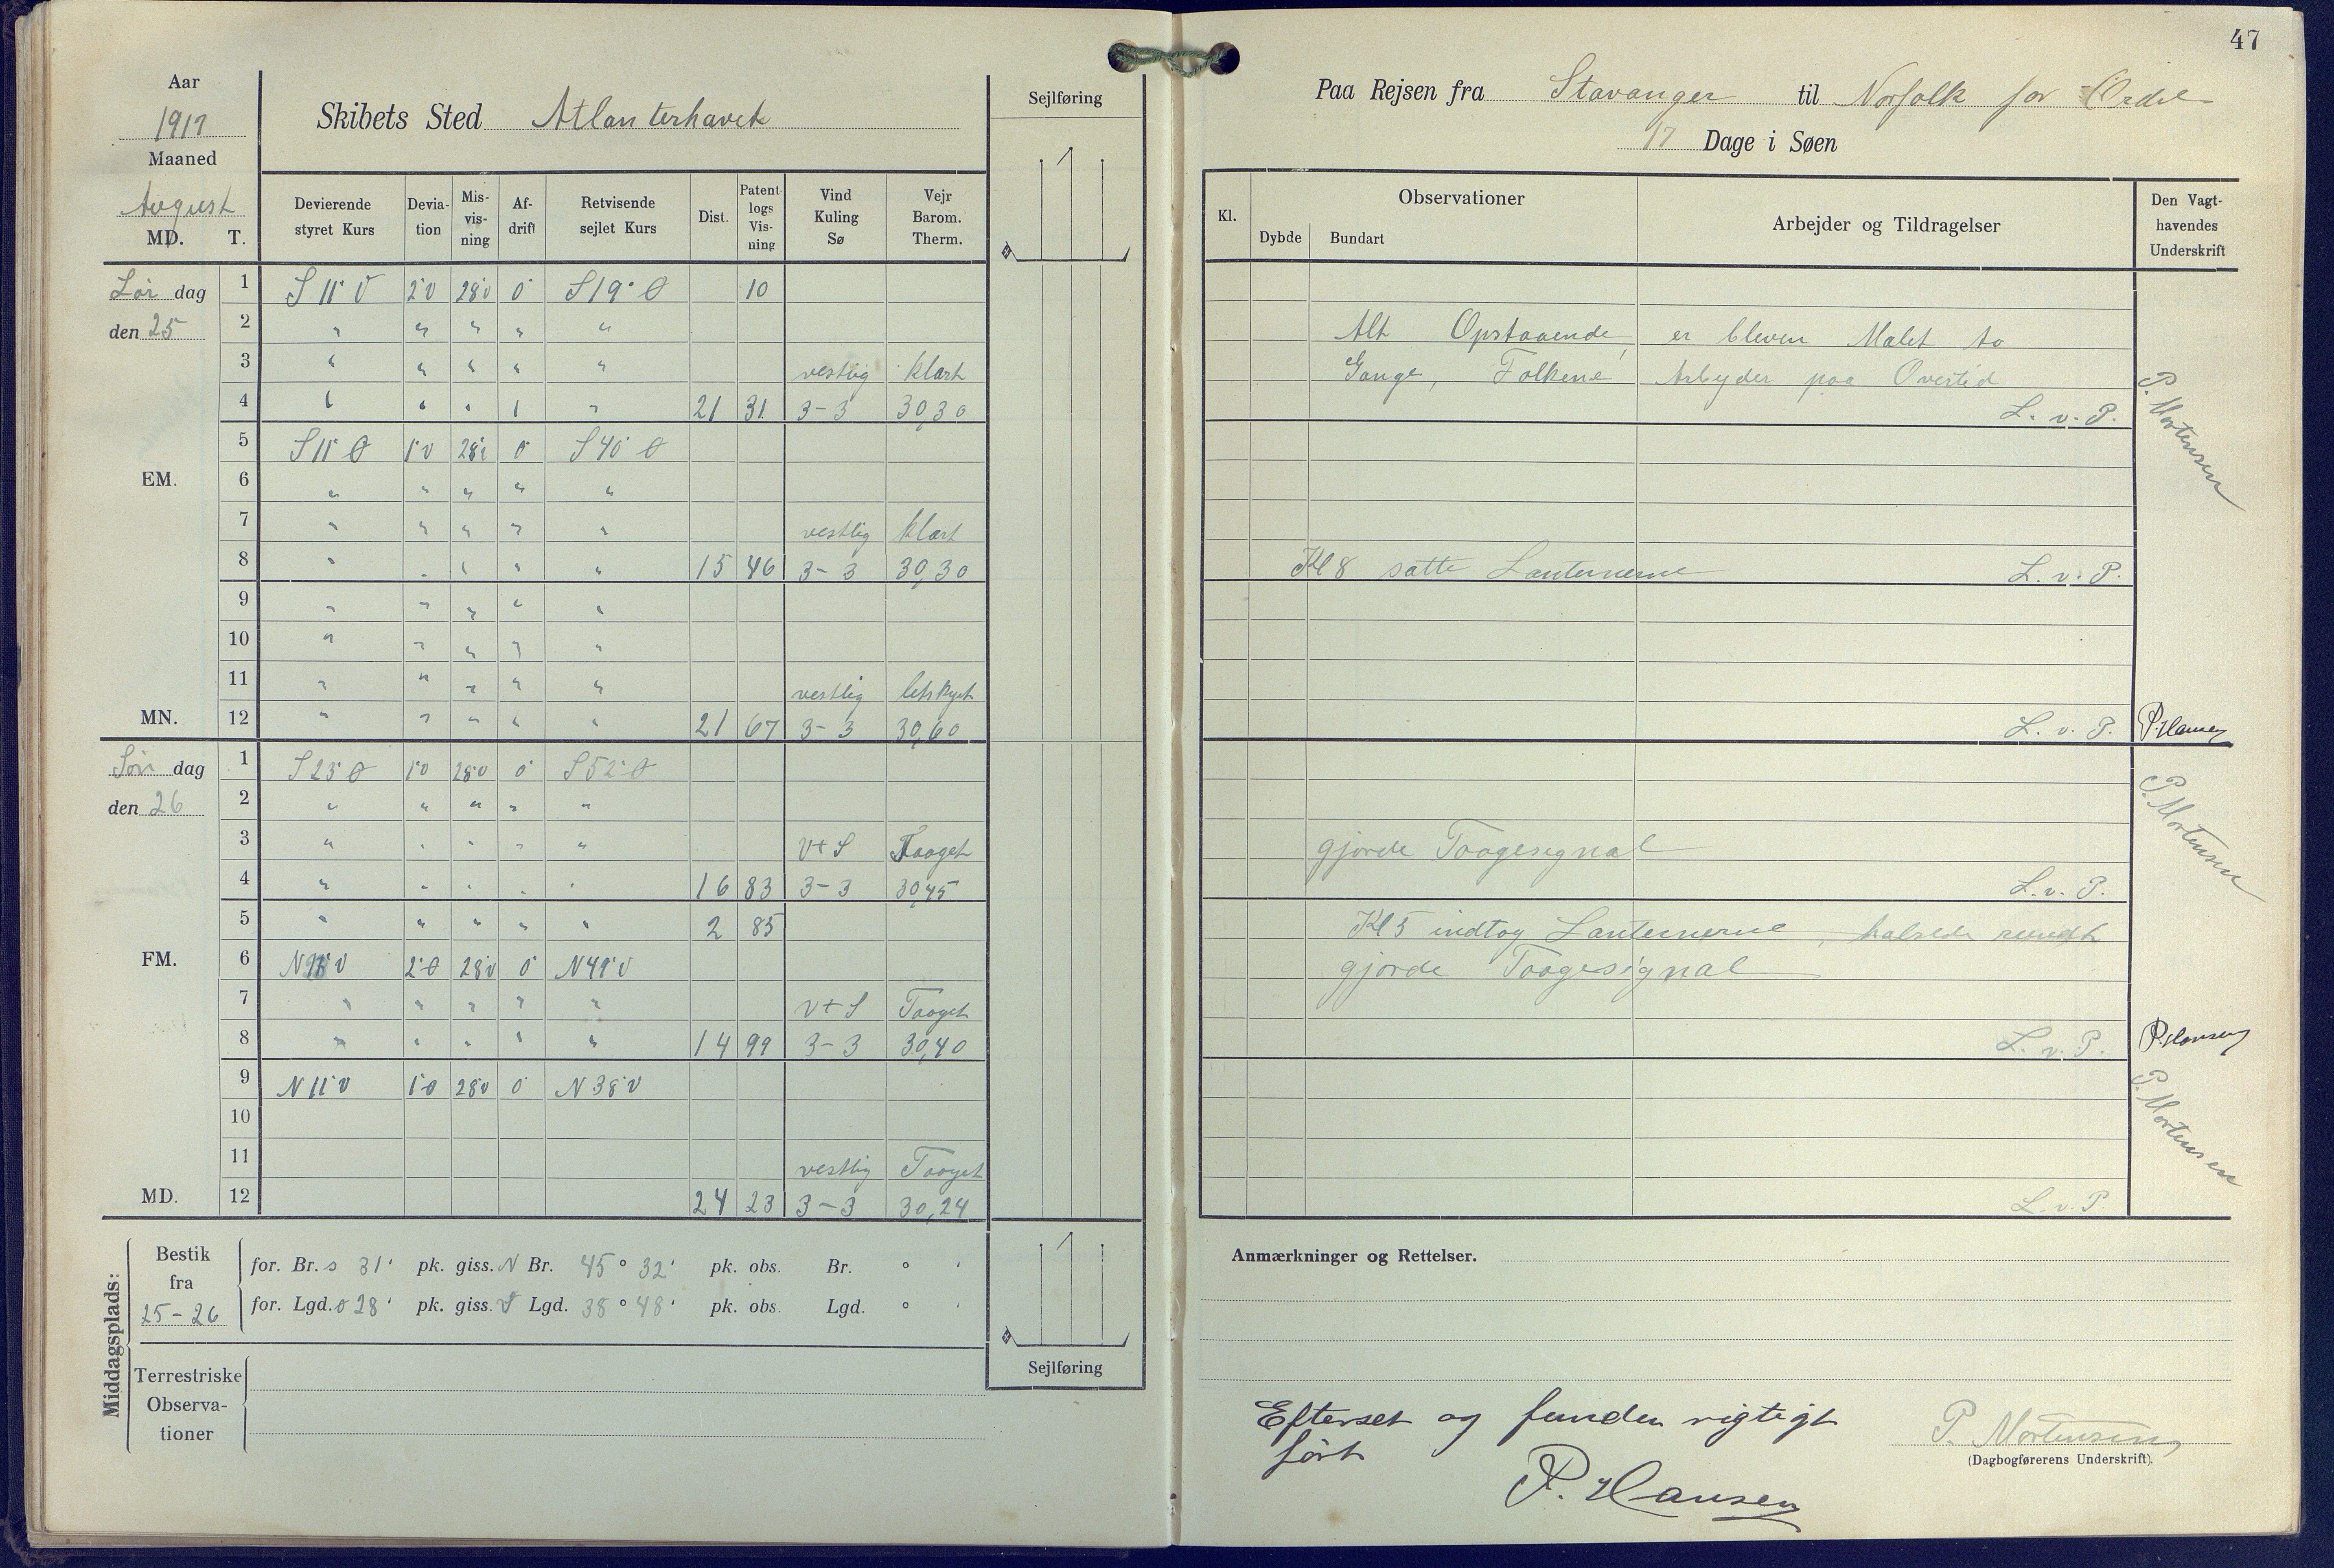 47
Aar
1917
Maaned
August
MD. T.
Skibets Sted Atlanterhavet
Sejlføring
Paa Rejsen fra Stavanger til Norfolk for Order
17 Dage i Søen
Devierende styret Kurs | Devia-tion | Mis-vis-ning | Af-drift | Retvisende sejlet Kurs | Dist. | Patent-logs Vis-ning | Vind Kuling Sø | Vejr Barom. Therm.
Kl. | Observationer | Dybde | Bundart | Arbejder og Tildragelser | Den Vagt-havendes Underskrift
Lör dag 1 S 11° V 2°V 28°V 0° S 19° Ø 10
den 25 2 " " " " "
Alt Opstaaende er bleven Malet to
3 " " " " " vestlig klart
Gange, Folkene Arbejder paa Overtid
4 " " " " " 21 31 3-3 30,30
L. v. P. P. Mortensen
5 S 11° Ø 1°V 28°V 0° S 40° Ø
EM. 6 " " " " "
7 " " " " " vestlig klart
8 " " " " " 15 46 3-3 30,30
Kl 8 satte Lanternerne L. v. P.
9 " " " " "
10 " " " " "
11 " " " " " vestlig letskyet
MN. 12 " " " " " 21 67 3-3 30,60
L. v. P. P. Hansen
Sön dag 1 S 23° Ø 1°V 28°V 0° S 52° Ø
den 26 2 " " " " "
3 " " " " " V t S Taaget
gjorde Taagesignal
4 " " " " " 16 83 3-3 30,45
L. v. P. P. Mortensen
5 " " " " " 2 85
Kl 5 indtog Lanternerne, halsede rundt
FM. 6 2°Ø 28°V 0° N 49° V
gjorde Taagesignal
7 " " " " " V t S Taaget
8 " " " " " 14 99 3-3 30,40
L. v. P. P. Hansen
9 N 11° V 1°Ø 28°V 0° N 38° V
10
11 vestlig Taaget
MD. 12 24 23 3-3 30,24
L. v. P. P. Mortensen
Middagsplads:
Bestik fra 25-26
for. Br. S 31' pk. giss. N Br. 45° 32' pk. obs. Br. ° '
for. Lgd. Ø 28' pk. giss. V Lgd. 38° 48' pk. obs. Lgd. ° '
Sejlføring
Terrestriske
Observa-
tioner
Anmærkninger og Rettelser.
Efterset og funden rigtigt
fört
P. Hansen
P. Mortensen
(Dagbogførerens Underskrift).